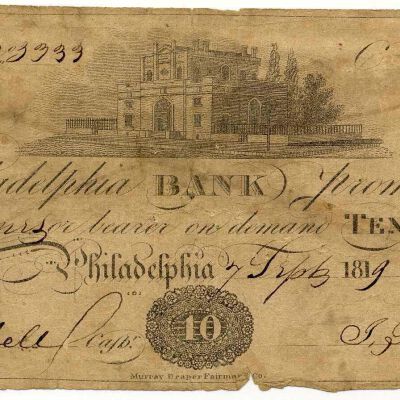 3333 C
adelphia BANK, prom
or bearer on demand TEN
Philadelphia 7 Septr 1819
Cashr 10
Murray Draper Fairman & Co.